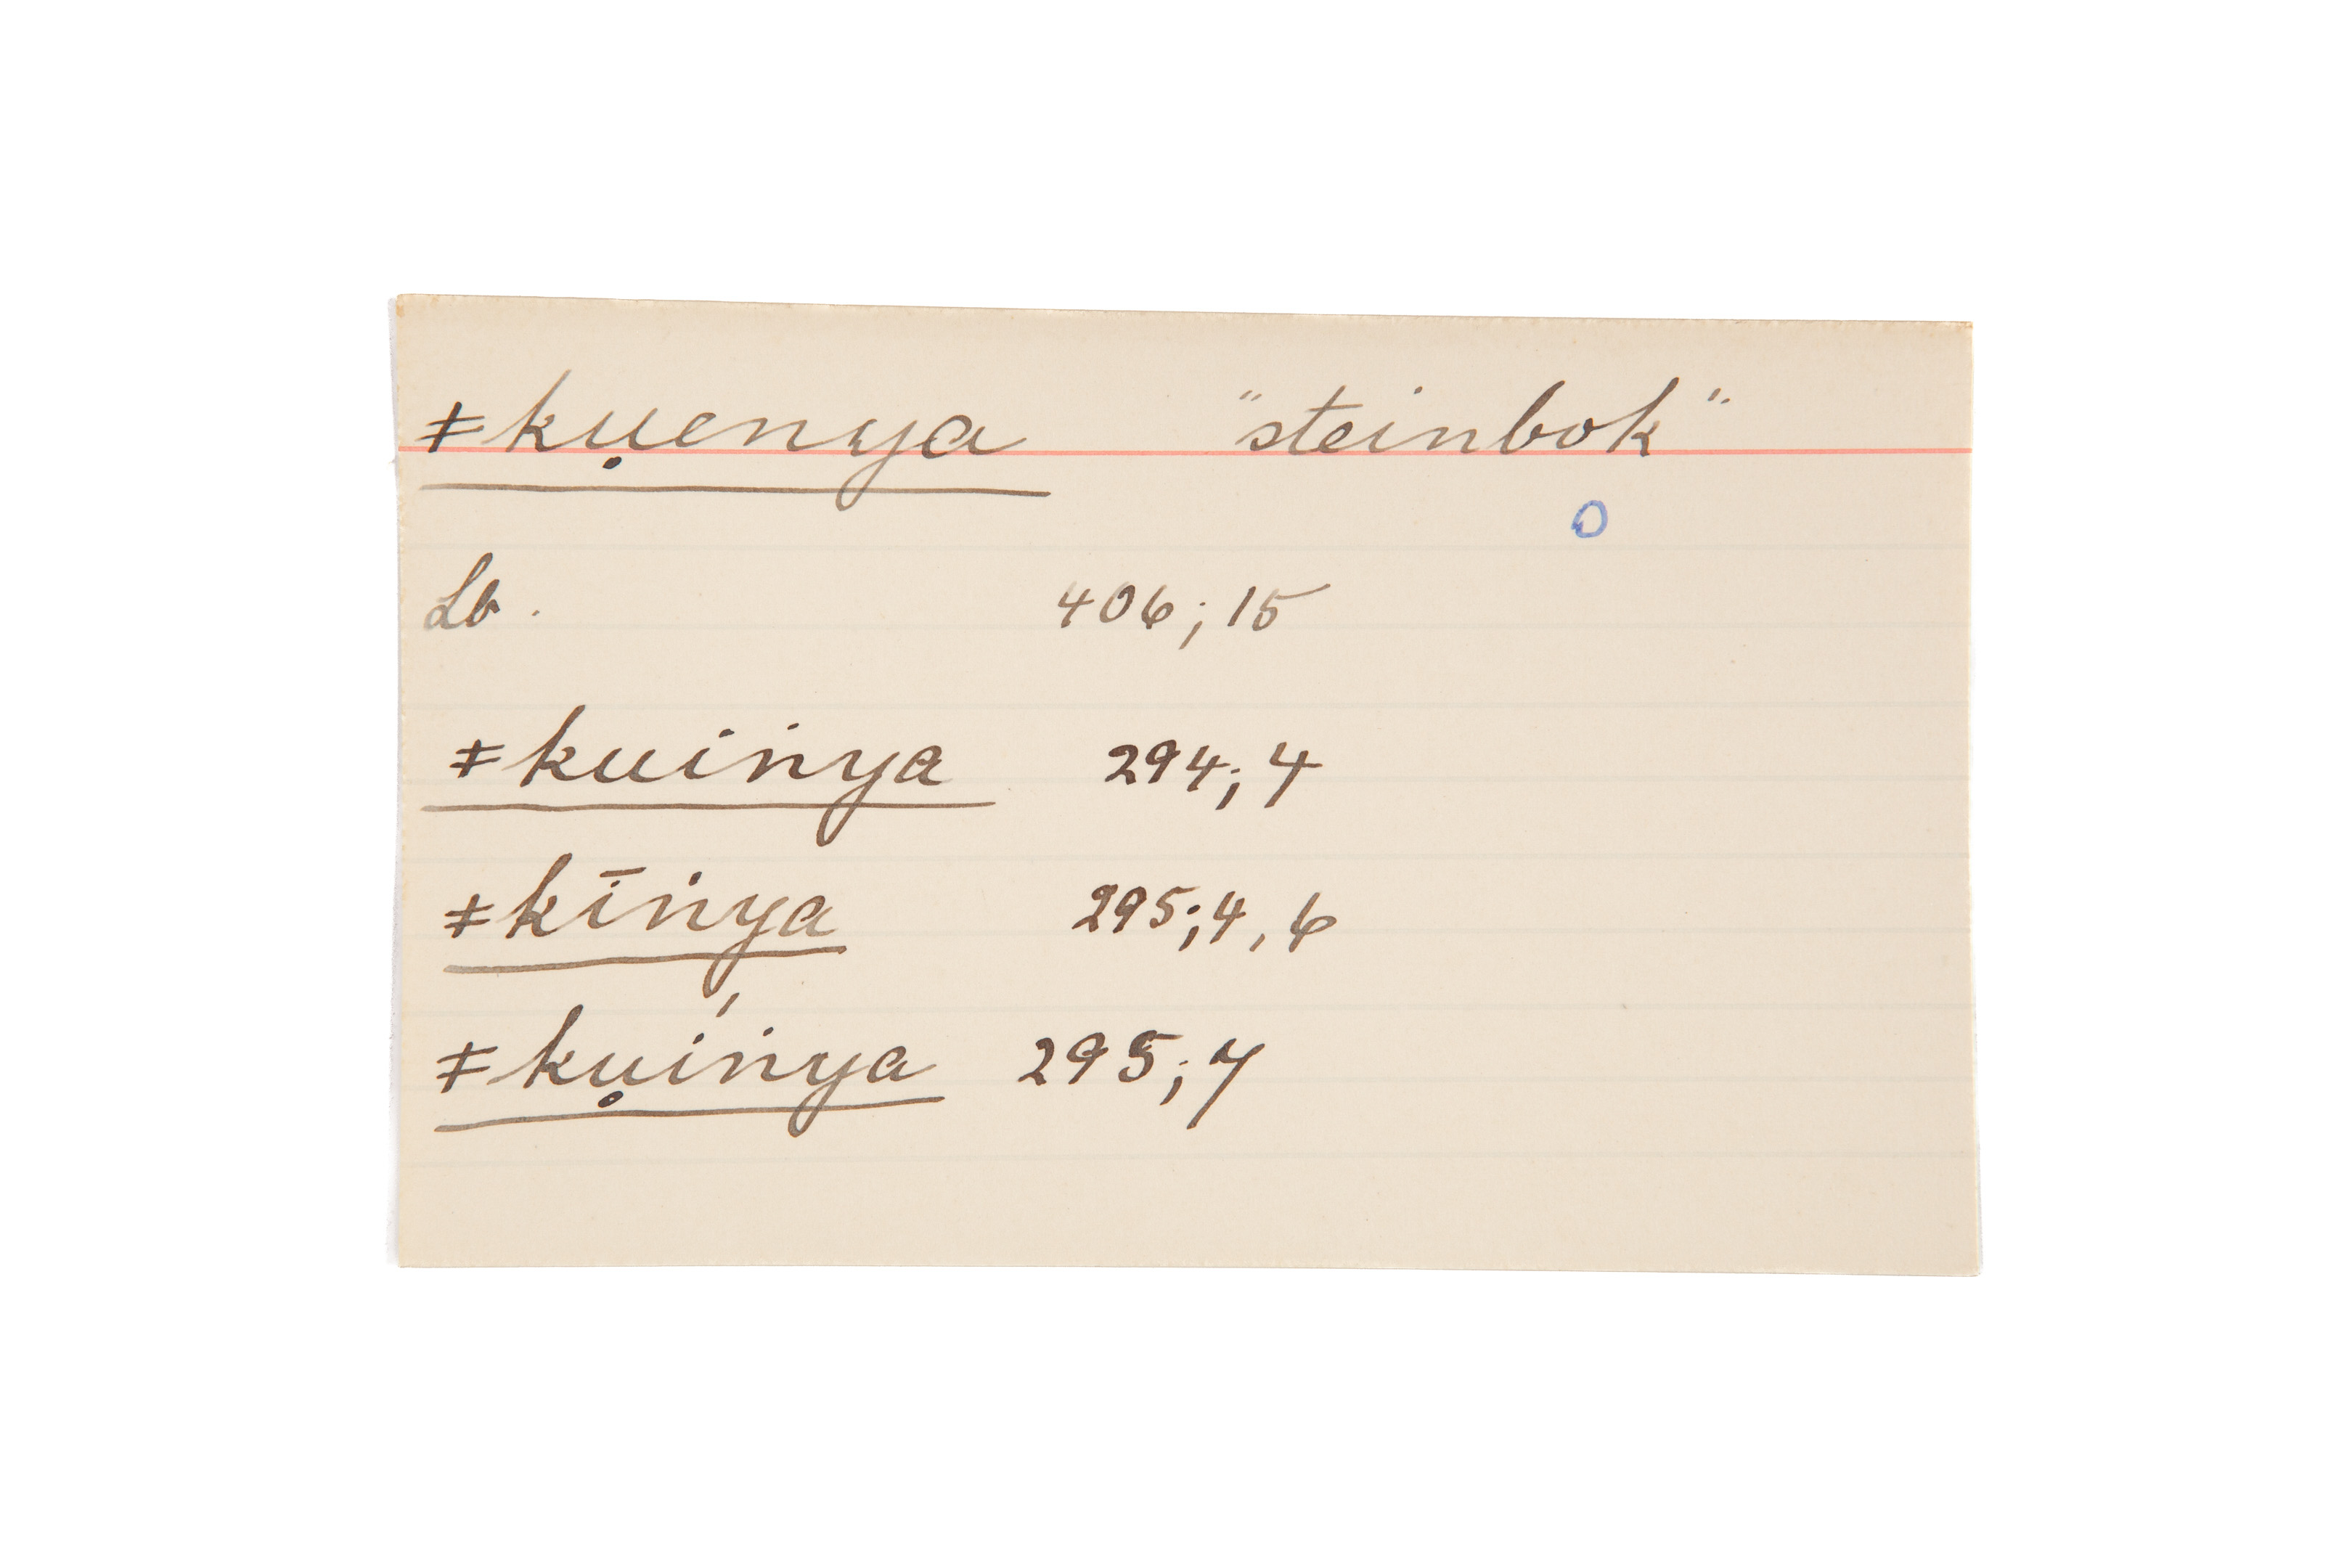 ǂkụenya "steinbok"
O
Lb. 406; 15
ǂkuiṅya 294; 4
ǂkīṅya 295; 4, 6
ǂkụíṅya 295; 7